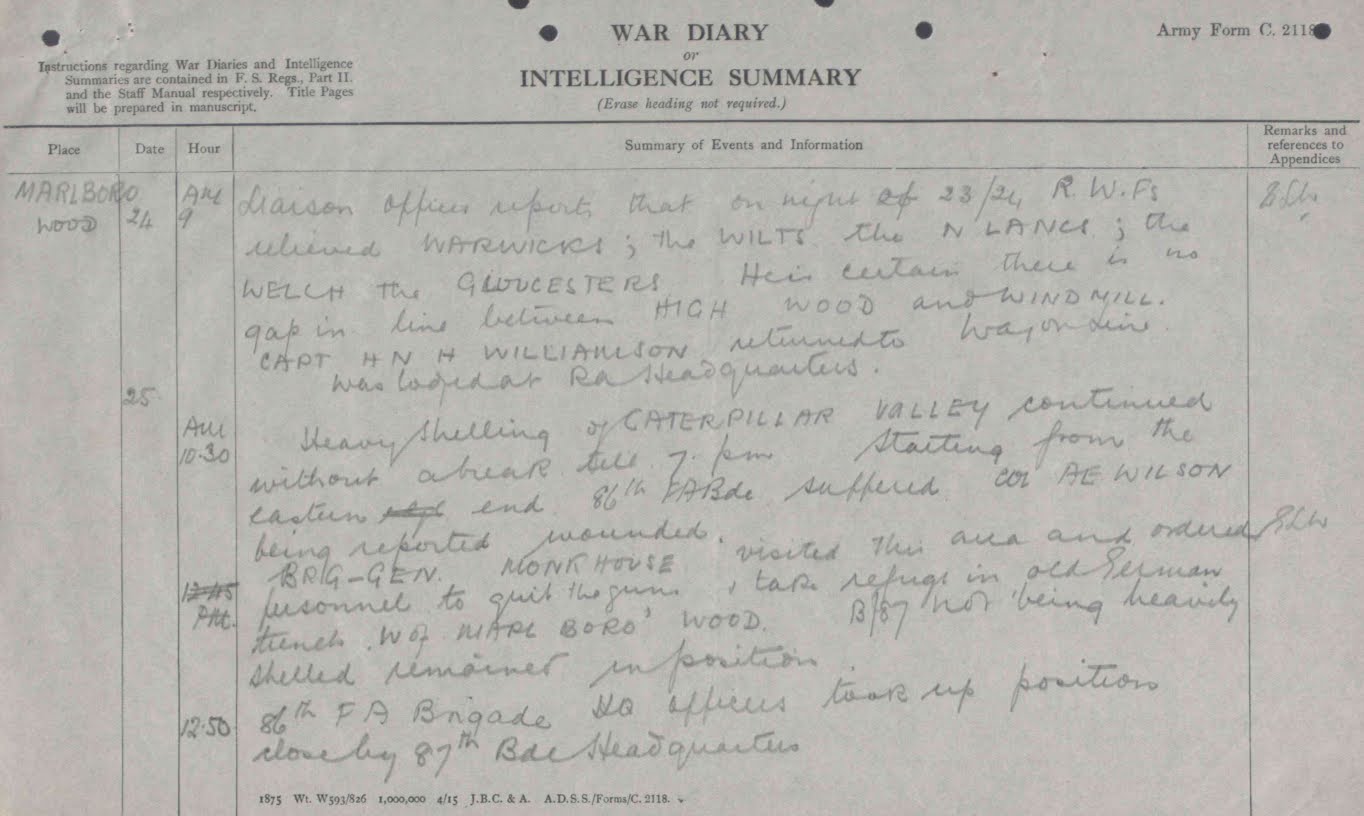 WAR DIARY
or
INTELLIGENCE SUMMARY
(Erase heading not required.)
Army Form C. 2118
Instructions regarding War Diaries and Intelligence
Summaries are contained in F. S. Regs., Part II.
and the Staff Manual respectively. Title Pages
will be prepared in manuscript.
Place Date Hour Summary of Events and Information Remarks and references to Appendices
MARLBORO WOOD 24 AM 9 Liaison officer reports that on night of 23/24 R.W.Fs
relieved WARWICKS; the WILTS the N LANCS; the
WELCH the GLOUCESTERS He is certain there is no
gap in line between HIGH WOOD and WINDMILL.
CAPT H N H WILLIAMSON returned to Wagon Line
was lodged at RA Headquarters.
25
AM 10.30 Heavy shelling of CATERPILLAR VALLEY continued
without a break till 7. pm Starting from the
eastern end. 86th FABde suffered Col AE WILSON
being reported wounded.
BRIG-GEN. MONKHOUSE visited this area and ordered
12.45 PM. personnel to quit the guns & take refuge in old German
trench W of MARLBORO' WOOD. B/87 not being heavily
shelled remained in position.
12.50 86th F A Brigade HQ officers took up position
close by 87th Bde Headquarters
1875 Wt. W593/826 1,000,000 4/15 J.B.C. & A. A.D.S.S./Forms/C. 2118.